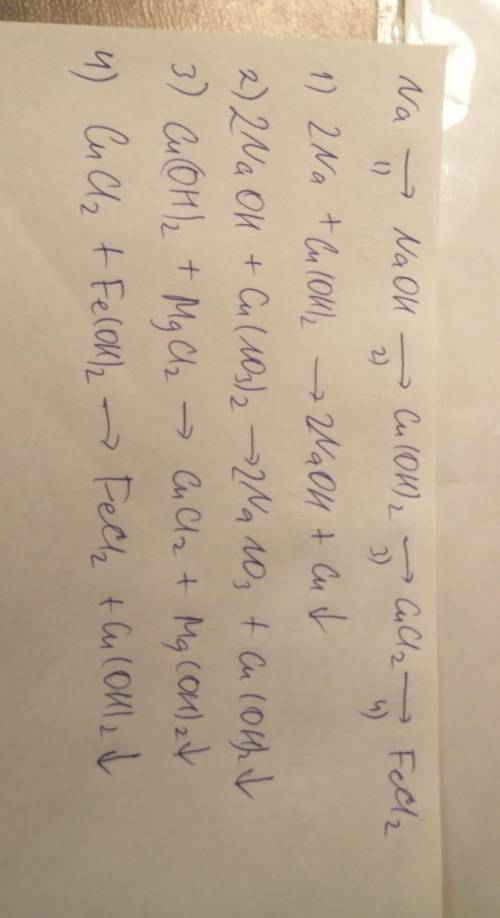 Na →1) NaOH →2) Cu(OH)2 →3) CuCl2 →4) FeCl2
1) 2Na + Cu(OH)2 → 2NaOH + Cu↓
2) 2NaOH + Cu(NO3)2 → 2NaNO3 + Cu(OH)2↓
3) Cu(OH)2 + MgCl2 → CuCl2 + Mg(OH)2↓
4) CuCl2 + Fe(OH)2 → FeCl2 + Cu(OH)2↓